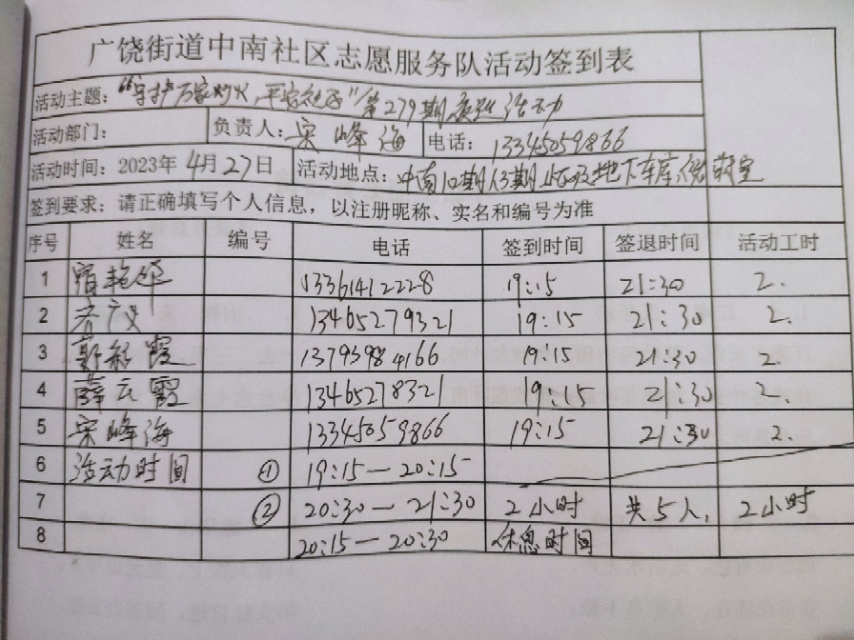 广饶街道中南社区志愿服务队活动签到表
活动主题：“守护万家灯火，平安社区”第279期夜巡活动
活动部门： 负责人：宋峰海 电话：13345059866
活动时间：2023年4月27日 活动地点：中南10期13期 地下车库
签到要求：请正确填写个人信息，以注册昵称、实名和编号为准
序号 姓名 编号 电话 签到时间 签退时间 活动工时
1 13361412228 19:15 21:30 2.
2 13465279321 19:15 21:30 2.
3 霞 13793984166 19:15 21:30 2.
4 薛云霞 13465278321 19:15 21:30 2.
5 宋峰海 13345059866 19:15 21:30 2.
6 活动时间 ① 19:15—20:15
7 ② 20:30—21:30 2小时 共5人, 2小时
8 20:15—20:30 休息时间